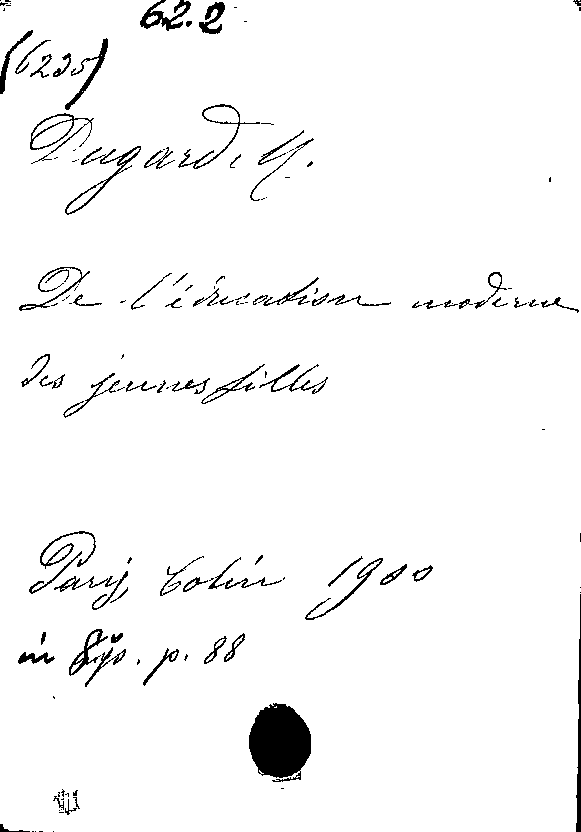 62.2
(6235)
Dugard, M.
De l'éducation moderne
des jeunes filles
Paris, Colin 1900
in 8º. p. 88